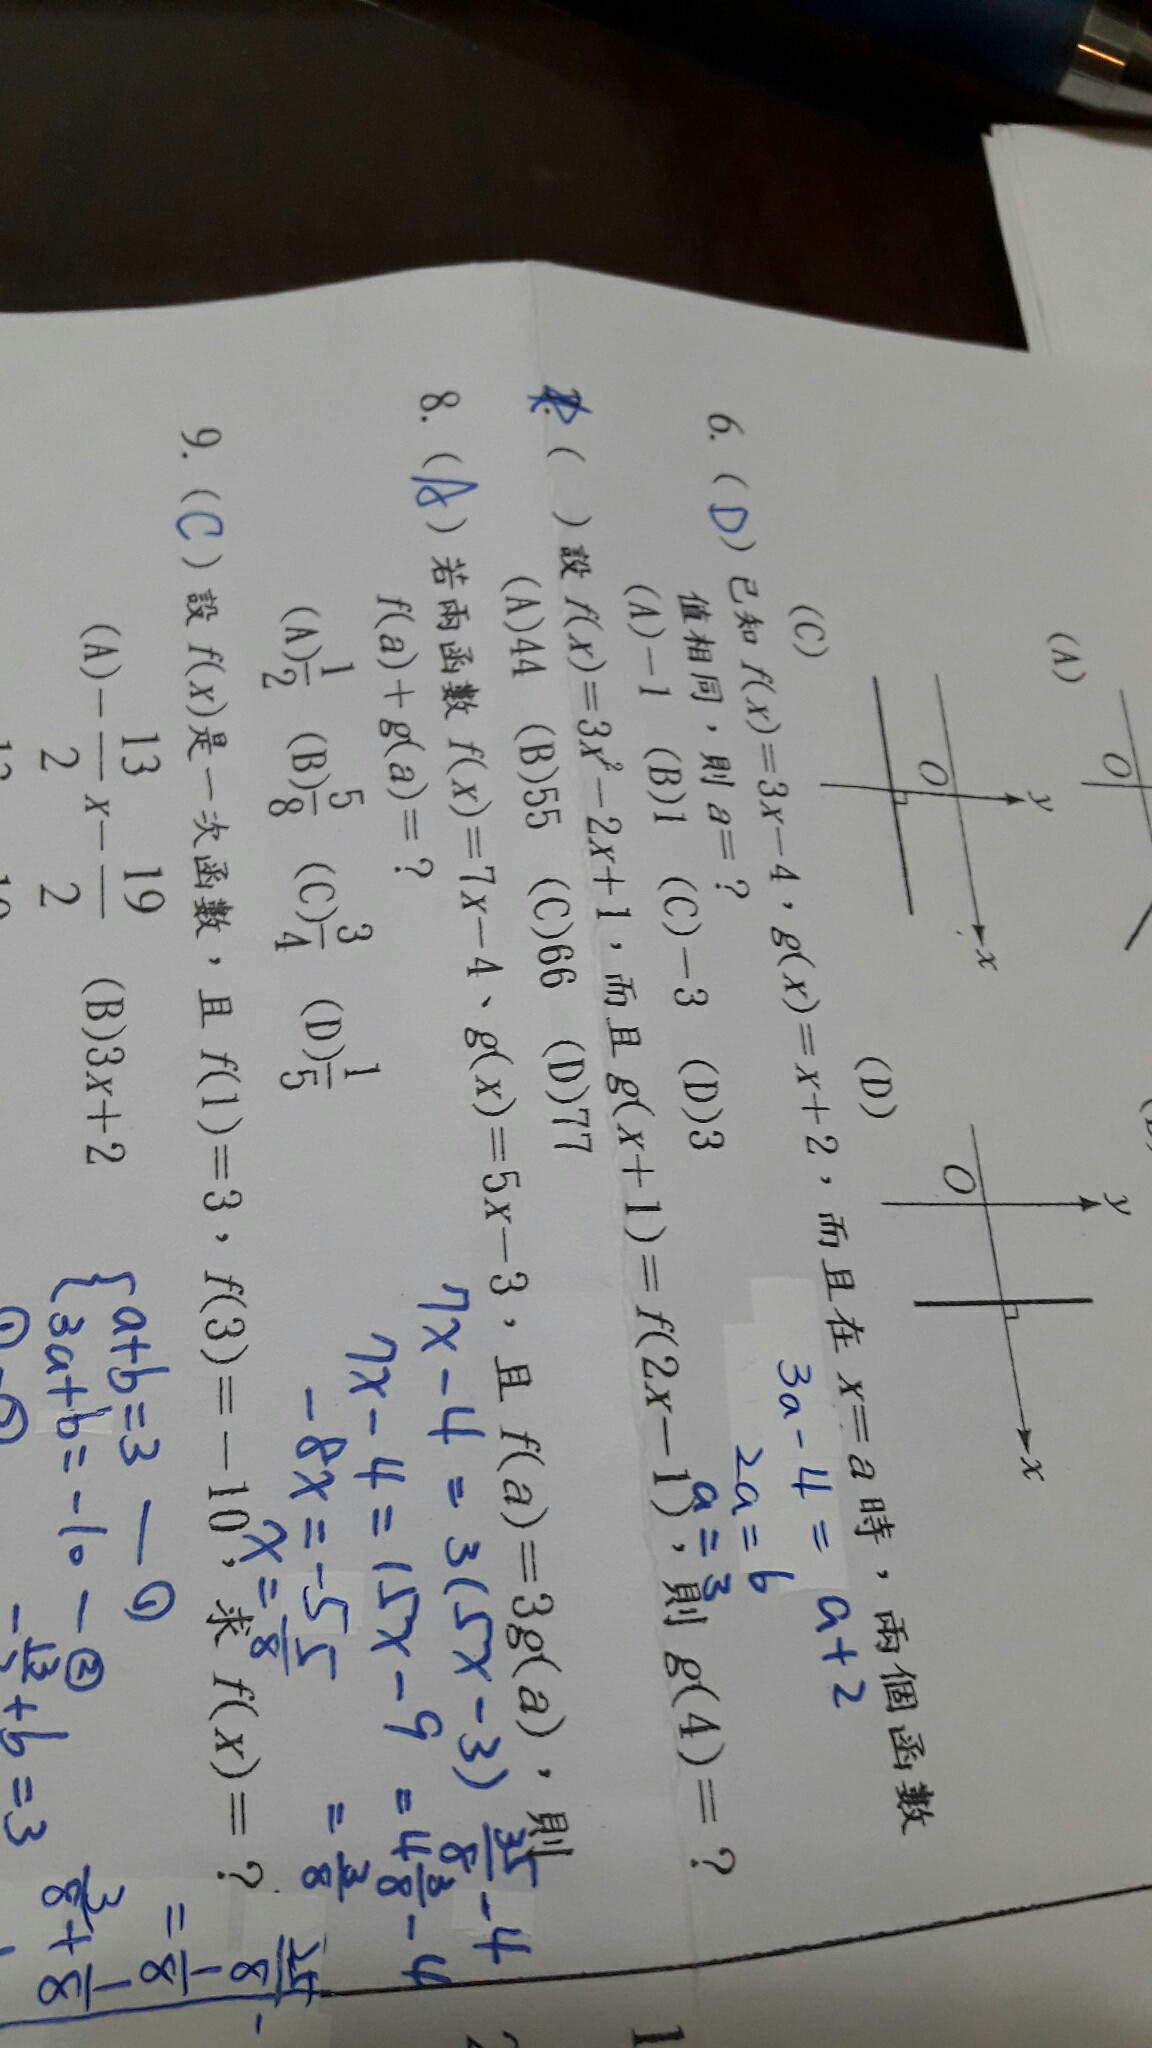 (A)
O
(C)
O
y
x
(D)
O
y
x
6. (D)已知 f(x)=3x-4,g(x)=x+2,而且在 x=a 時,兩個函數
值相同,則 a=?
3a-4=a+2
2a=6
a=3
(A)-1 (B)1 (C)-3 (D)3
( )設 f(x)=3x²-2x+1,而且 g(x+1)=f(2x-1),則 g(4)=?
(A)44 (B)55 (C)66 (D)77
8. (A)若兩函數 f(x)=7x-4、g(x)=5x-3,且 f(a)=3g(a),則
f(a)+g(a)=?
7x-4=3(5x-3)
7x-4=15x-9
-8x=-5
x=5/8
35/8-4
=4 3/8-4
=3/8
(A)1/2 (B)5/8 (C)3/4 (D)1/5
9. (C)設 f(x)是一次函數,且 f(1)=3,f(3)=-10,求 f(x)=?
=1/8
3/8+1/8
(A)-13/2x-19/2 (B)3x+2
a+b=3 — ①
3a+b=-10 - ②
+b=3
1
2